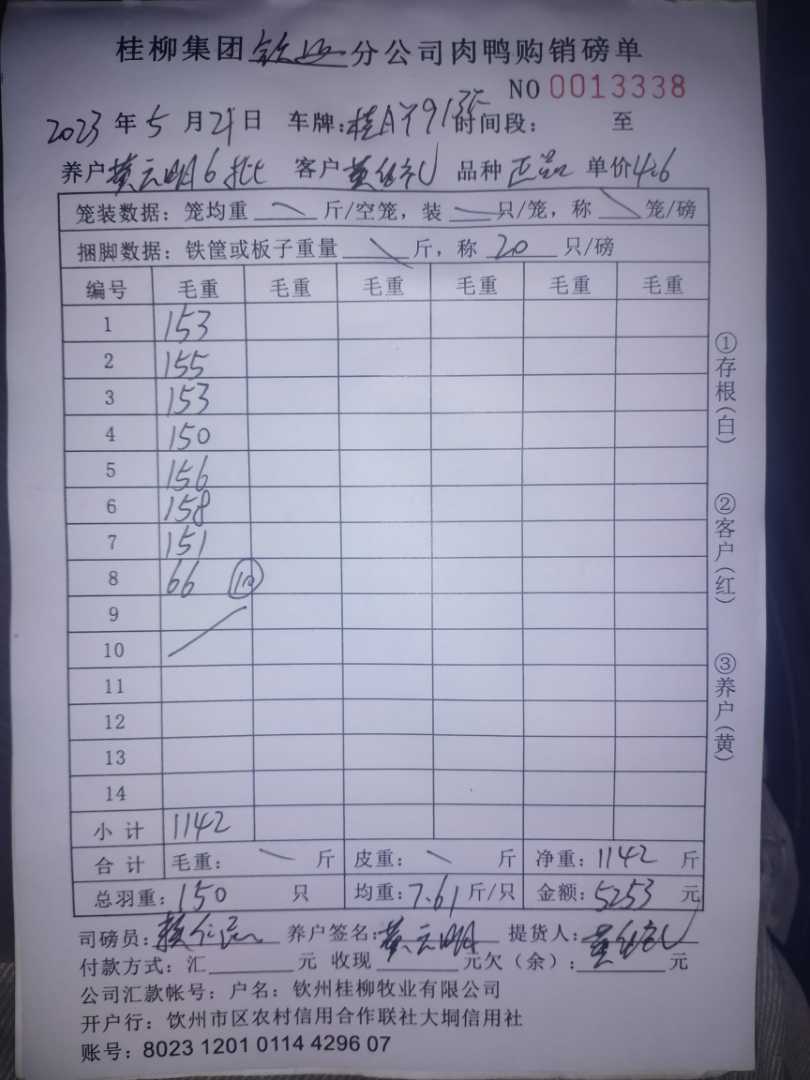 桂柳集团钦州分公司肉鸭购销磅单
NO 0013338
2023 年 5 月 21 日 车牌: 桂A 时间段: 至
养户 黄云明6批 客户 品种 正品 单价
笼装数据: 笼均重 斤/空笼, 装 只/笼, 称 笼/磅
捆脚数据: 铁筐或板子重量 斤, 称 20 只/磅
编号 毛重 毛重 毛重 毛重 毛重 毛重
1 153
2 155
3 153
4 150
5 156
6 158
7 151
8 66 10
9
10
11
12
13
14
小 计 1142
合 计 毛重: 斤 皮重: 斤 净重: 1142 斤
总羽重: 150 只 均重: 7.61 斤/只 金额: 5253 元
司磅员: 养户签名: 黄云明 提货人:
付款方式: 汇 元 收现 元欠(余): 元
公司汇款帐号: 户名: 钦州桂柳牧业有限公司
开户行: 钦州市区农村信用合作联社大垌信用社
账号: 8023 1201 0114 4296 07
①存根(白)
②客户(红)
③养户(黄)